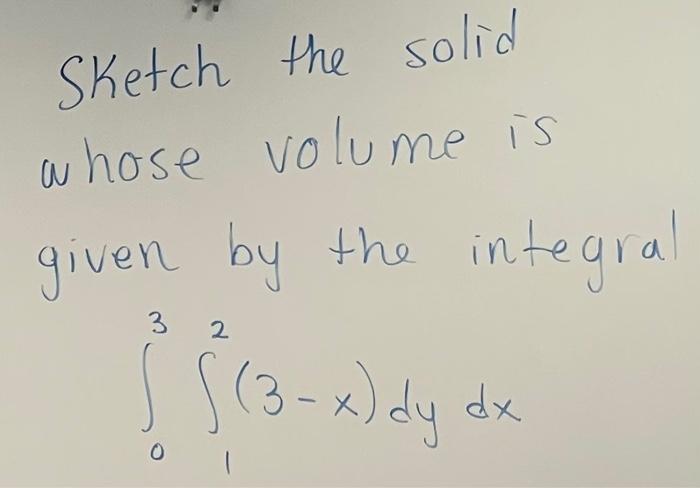 Sketch the solid
whose volume is
given by the integral
∫₀³ ∫₁² (3-x) dy dx